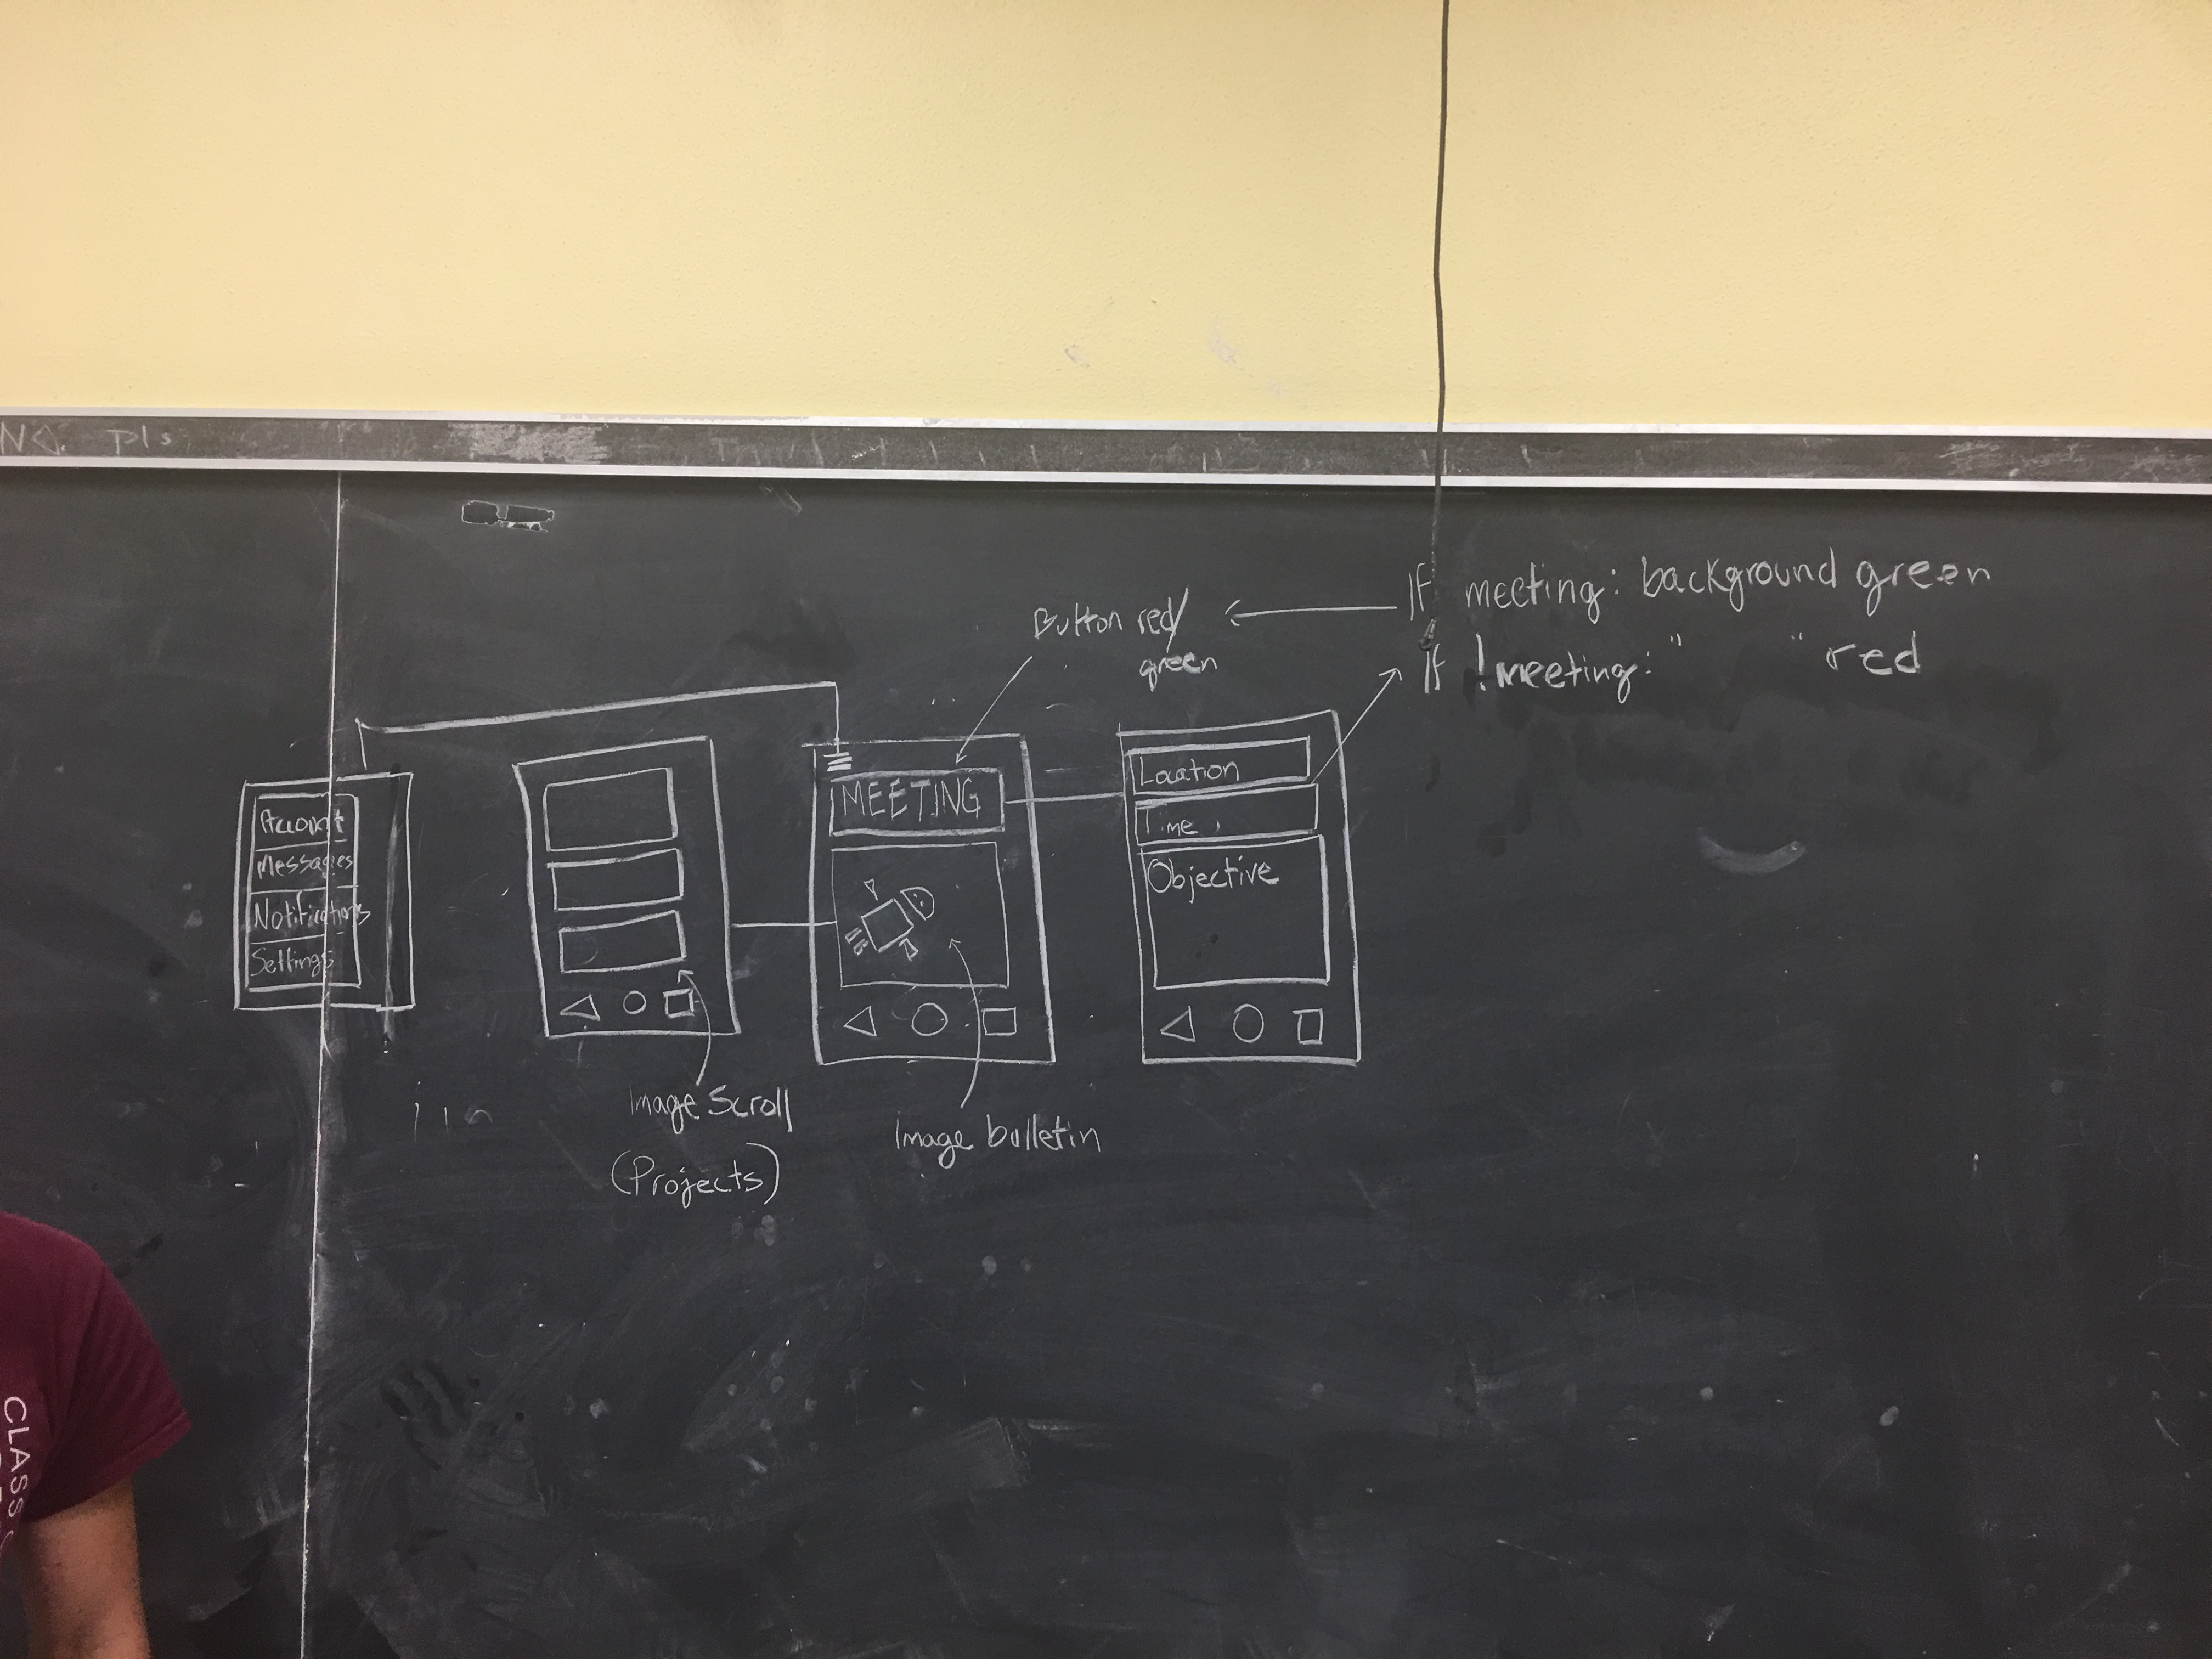 pls
If meeting: background green
If !meeting: " " red
Button red/
green
Account
Messages
Notifications
Settings
MEETING
Location
Time
Objective
Image Scroll
(Projects)
Image bulletin
CLASS